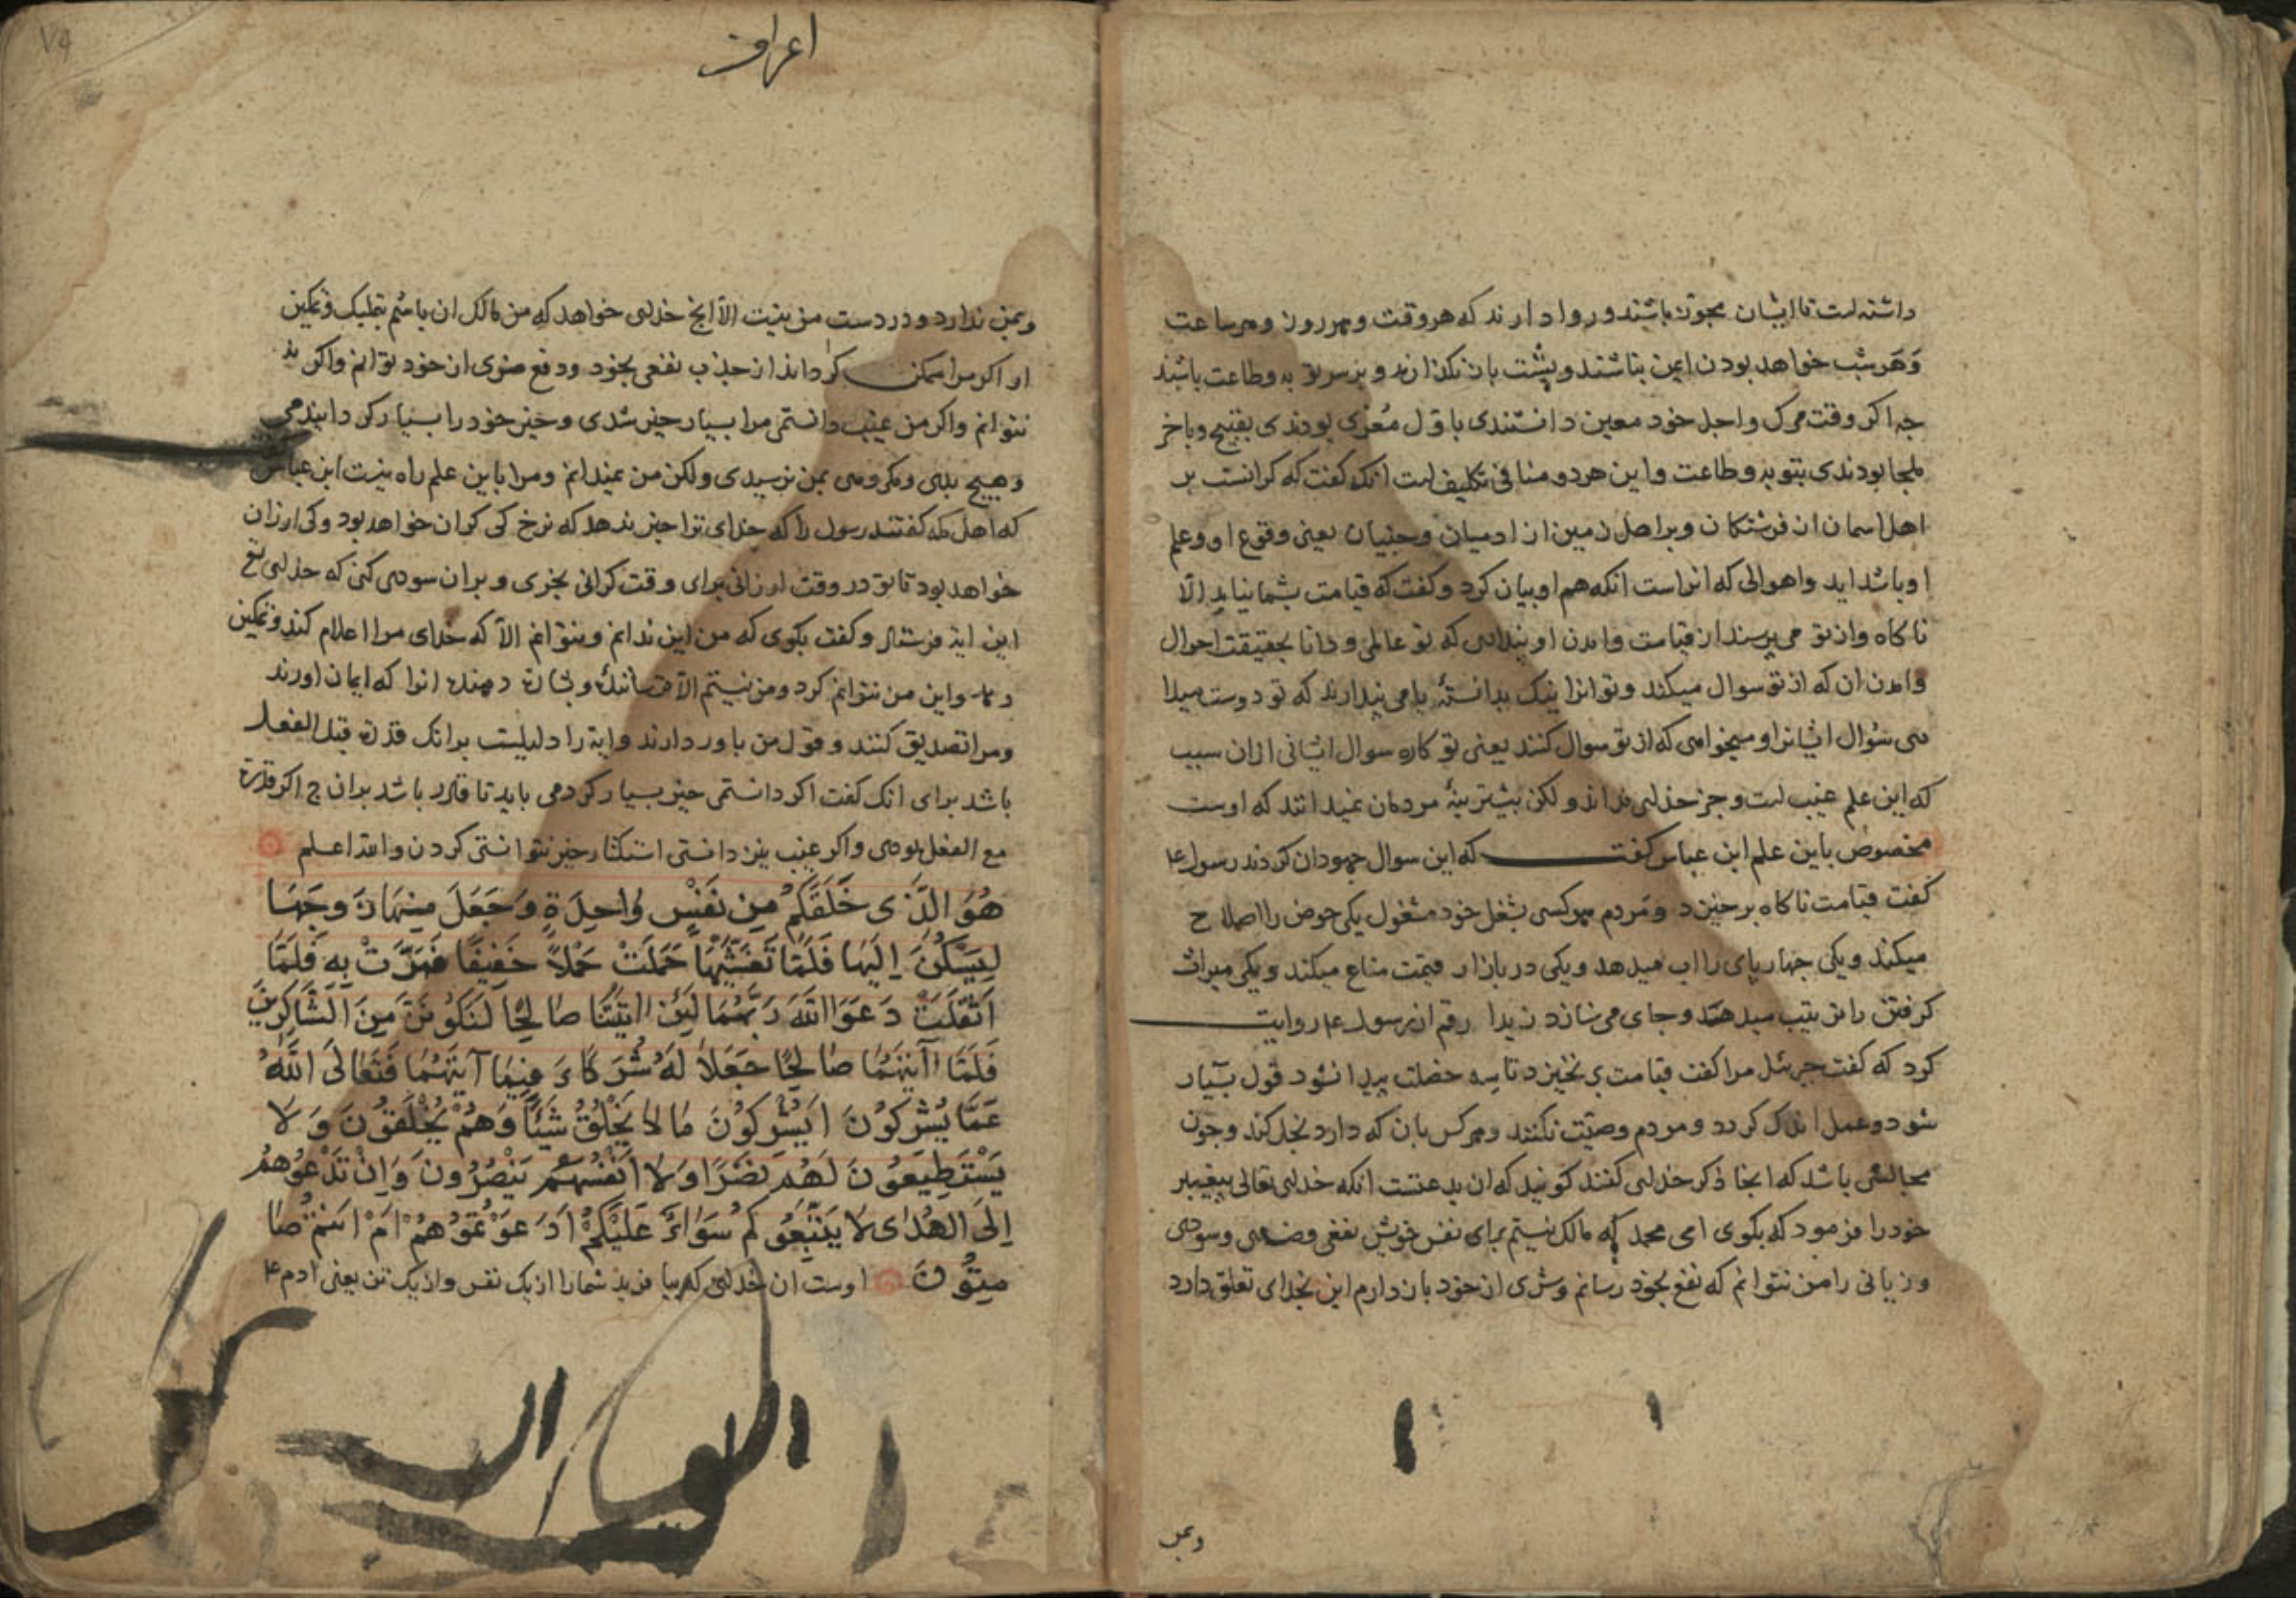 داشته است تا ایشان مجوز باشند و روا دارند که هر وقت و هر روز و هر ساعت
و هر شب خواهد بودن ایمن نباشند و پشت بان نکذارند و بر سر توبه و طاعت باشند
جه اکر وقت مرک و اجل خود معین دانستندی باول مغری بودندی بقبیح و باخر
ملجا بودندی بتوبه و طاعت و این هر دو منافی تکلیف است انکه کفت که کرانست بر
اهل اسمان از فرشتکان و بر اهل زمین از ادمیان و جنیان یعنی وقوع او و علم
او باشداید و اهوالی که انراست انکه هم او بیان کرد و کفت که قیامت بشما نیاید الا
ناکاه و از تو می پرسند از قیامت و امدن او بنداری که تو عالمی و دانا بحقیقت احوال
و امدن ان که از تو سوال میکنند و تو انرا نیک بدانستهٔ یا می پندارند که تو دوست میدا
ری سؤال ایشانرا و میخواهی که از تو سوال کنند یعنی تو کاره سوال ایشانی از ان سبب
که این علم غیب است و جز خدای نداند و لکن بیشترینهٔ مردمان نمیدانند که اوست
مخصوص باین علم ابن عباس کفت که این سوال جهودان کردند رسول ع
کفت قیامت ناکاه برخیزد و مردم هر کسی بشغل خود مشغول یکی حوض را اصلاح
میکند و یکی جهارپای را اب میدهد و یکی در بازار قیمت متاع میکند و یکی میراث
کرفتن را ترتیب میدهد و جای می سازد زید ارقم از رسول ع روایت
کرد که کفت جبرئل مرا کفت قیامت برنخیزد تا سه خصلت پیدا نشود قول بسیار
شود و عمل اندک کردد و مردم وصیت نکنند و هر کس بان که دارد بخل کند و جون
مجالسی باشد که انجا ذکر خدای کنند کویند که ان بدعتست انکه خدای تعالی پیغیبر
خود را فرمود که بکوی ای محمد که مالک نیستم برای نفس خویش نفعی و ضری و سودی
و زیانی را من نتوانم که نفع بخود رسانم و شری از خود باز دارم این بخدای تعلق دارد
وبمن
اعراف
٧٩
وبمن ندارد و در دست من نیت الا انج خدای خواهد که من مالک ان باشم بتملیک و تمکین
او اکر مرا ممکن کرداند از جذب نفعی بخود و دفع ضری از خود توانم و اکر نه
نتوانم و اکر من غیب دانستمی مرا بسیار خیر شدی و خیر خود را بسیار کردانیدمی
و هیچ بدی و مکروهی بمن نرسیدی ولکن من نمیدانم و مرا باین علم راه نیت ابن عباس
که اهل مکه کفتند رسول را که خدای ترا خبر ندهد که نرخ کی کران خواهد بود و کی ارزان
خواهد بود تا تو در وقت ارزانی برای وقت کرانی بخری و بران سودی کنی که خدای تع
این ایه فرستاد و کفت بکوی که من این ندانم و نتوانم الا که خدای مرا اعلام کند و تمکین
دهد و این من نتوانم کرد و من نیستم الا ترسانندهٔ و بشارت دهنده انرا که ایمان اورند
و مرا تصدیق کنند و قول من باور دارند و ایة را دلیلیست برانک قدرت قبل الفعل
باشد برای انک کفت اکر دانستمی خیر بسیار کردمی باید تا قادر باشد بران ج اکر قدرت
مع الفعل بودی و اکر غیب نیز دانستی استکثار خیر نتوانستی کردن والله اعلم
هُوَ الَّذی خَلَقَکُم مِن نَفْسٍ وَاحِدَةٍ وَجَعَلَ مِنهَا زَوجَهَا
لِیَسْکُنَ اِلَیهَا فَلَمَّا تَغَشّٰیهَا حَمَلَتْ حَمْلاً خَفِیفًا فَمَرَّتْ بِهِ فَلَمَّا
اَثْقَلَتْ دَعَوَا اللّٰهَ رَبَّهُمَا لَئِن اٰتَیْتَنَا صَالِحًا لَنَکُونَنَّ مِنَ الشَّاکِرینَ
فَلَمَّا اٰتٰیهُمَا صَالِحًا جَعَلَا لَهُ شُرَکَاءَ فِیمَا آتٰیهُمَا فَتَعَالَی اللّٰهُ
عَمَّا یُشْرِکُونَ اَیُشْرِکُونَ مَا لَا یَخْلُقُ شَیْئًا وَهُمْ یُخْلَقُونَ وَلَا
یَسْتَطِیعُونَ لَهُمْ نَصْرًا وَلَا اَنْفُسَهُمْ یَنْصُرُونَ وَاِنْ تَدْعُوهُمْ
اِلَی الْهُدٰی لَا یَتَّبِعُوکُمْ سَوَاءٌ عَلَیْکُمْ اَدَعَوْتُمُوهُمْ اَمْ اَنْتُمْ صَا
مِتُونَ اوست ان خدای که بیافرید شما را از یک نفس و از یک تن یعنی ادم ع